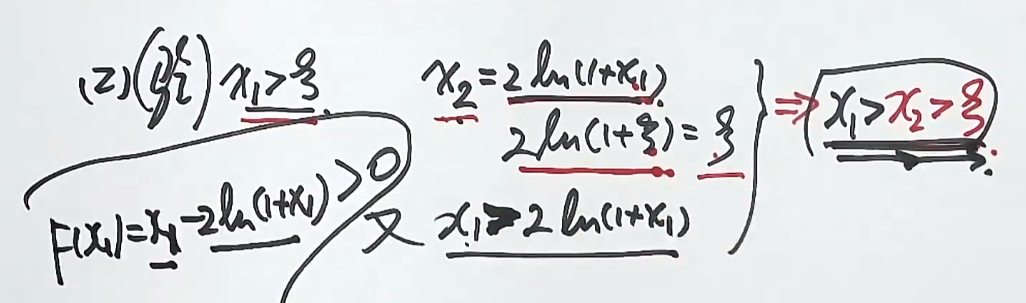 (2) x₁>ξ.
F(x₁)=x₁-2ln(1+x₁)>0
x₂=2ln(1+x₁)
2ln(1+ξ)=ξ
又 x₁>2ln(1+x₁)
⇒ x₁>x₂>ξ.